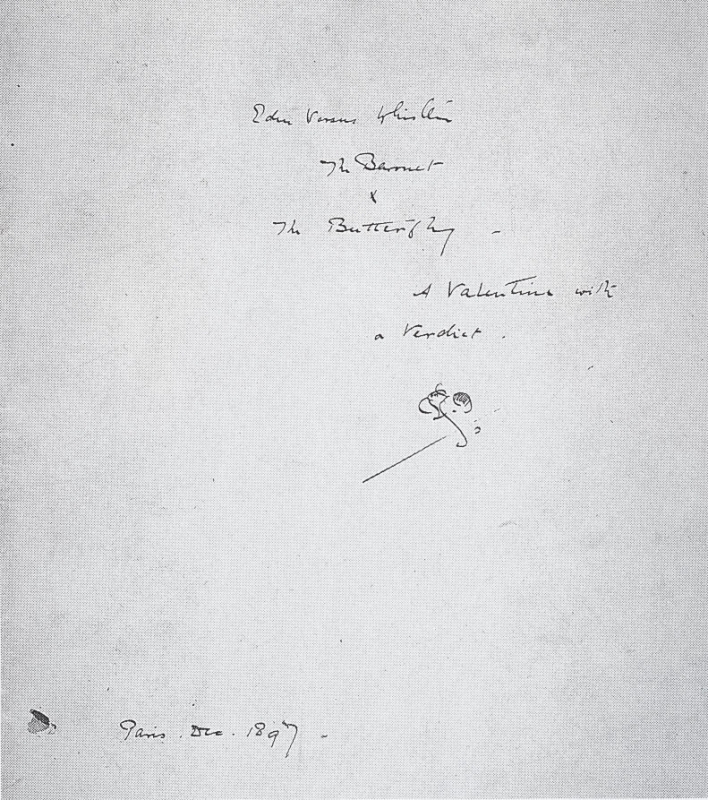 Eden Versus Whistler
The Baronet
&
The Butterfly -
A Valentine with
a Verdict.
Paris. Dec. 1897 -